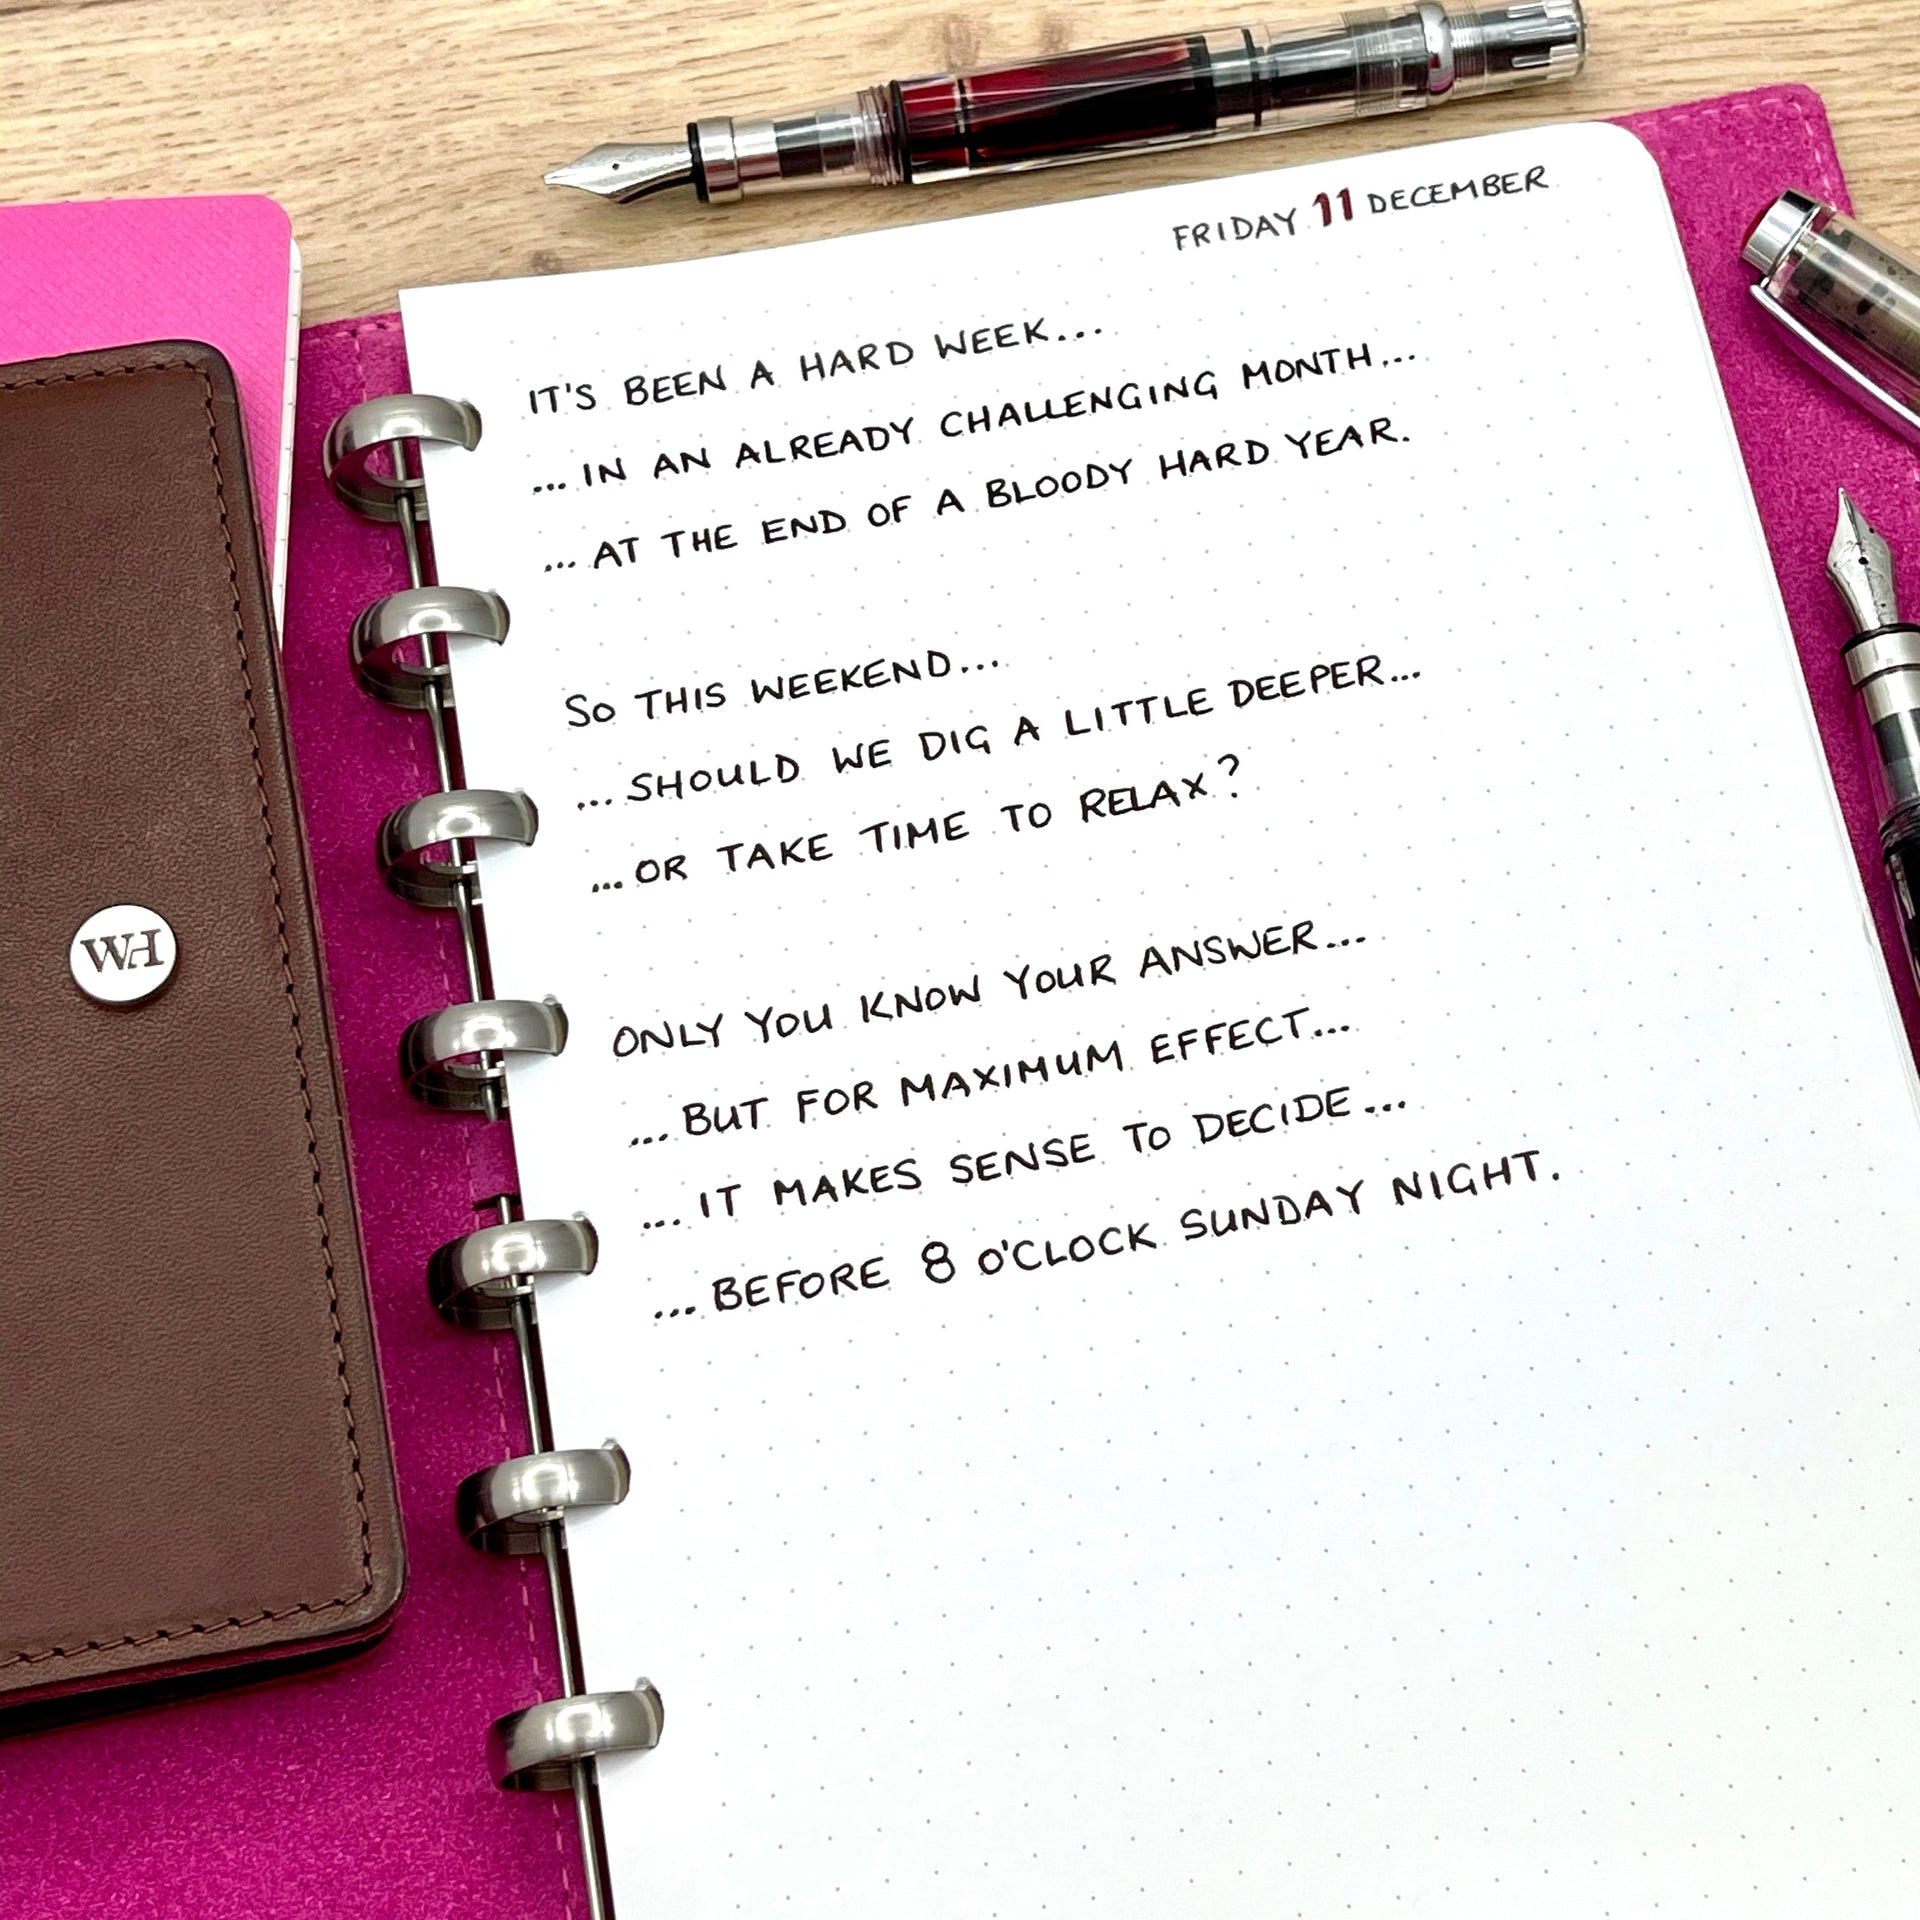 FRIDAY 11 DECEMBER
IT'S BEEN A HARD WEEK...
...IN AN ALREADY CHALLENGING MONTH...
...AT THE END OF A BLOODY HARD YEAR.
SO THIS WEEKEND...
...SHOULD WE DIG A LITTLE DEEPER...
...OR TAKE TIME TO RELAX?
ONLY YOU KNOW YOUR ANSWER...
...BUT FOR MAXIMUM EFFECT...
...IT MAKES SENSE TO DECIDE...
...BEFORE 8 O'CLOCK SUNDAY NIGHT.
WH